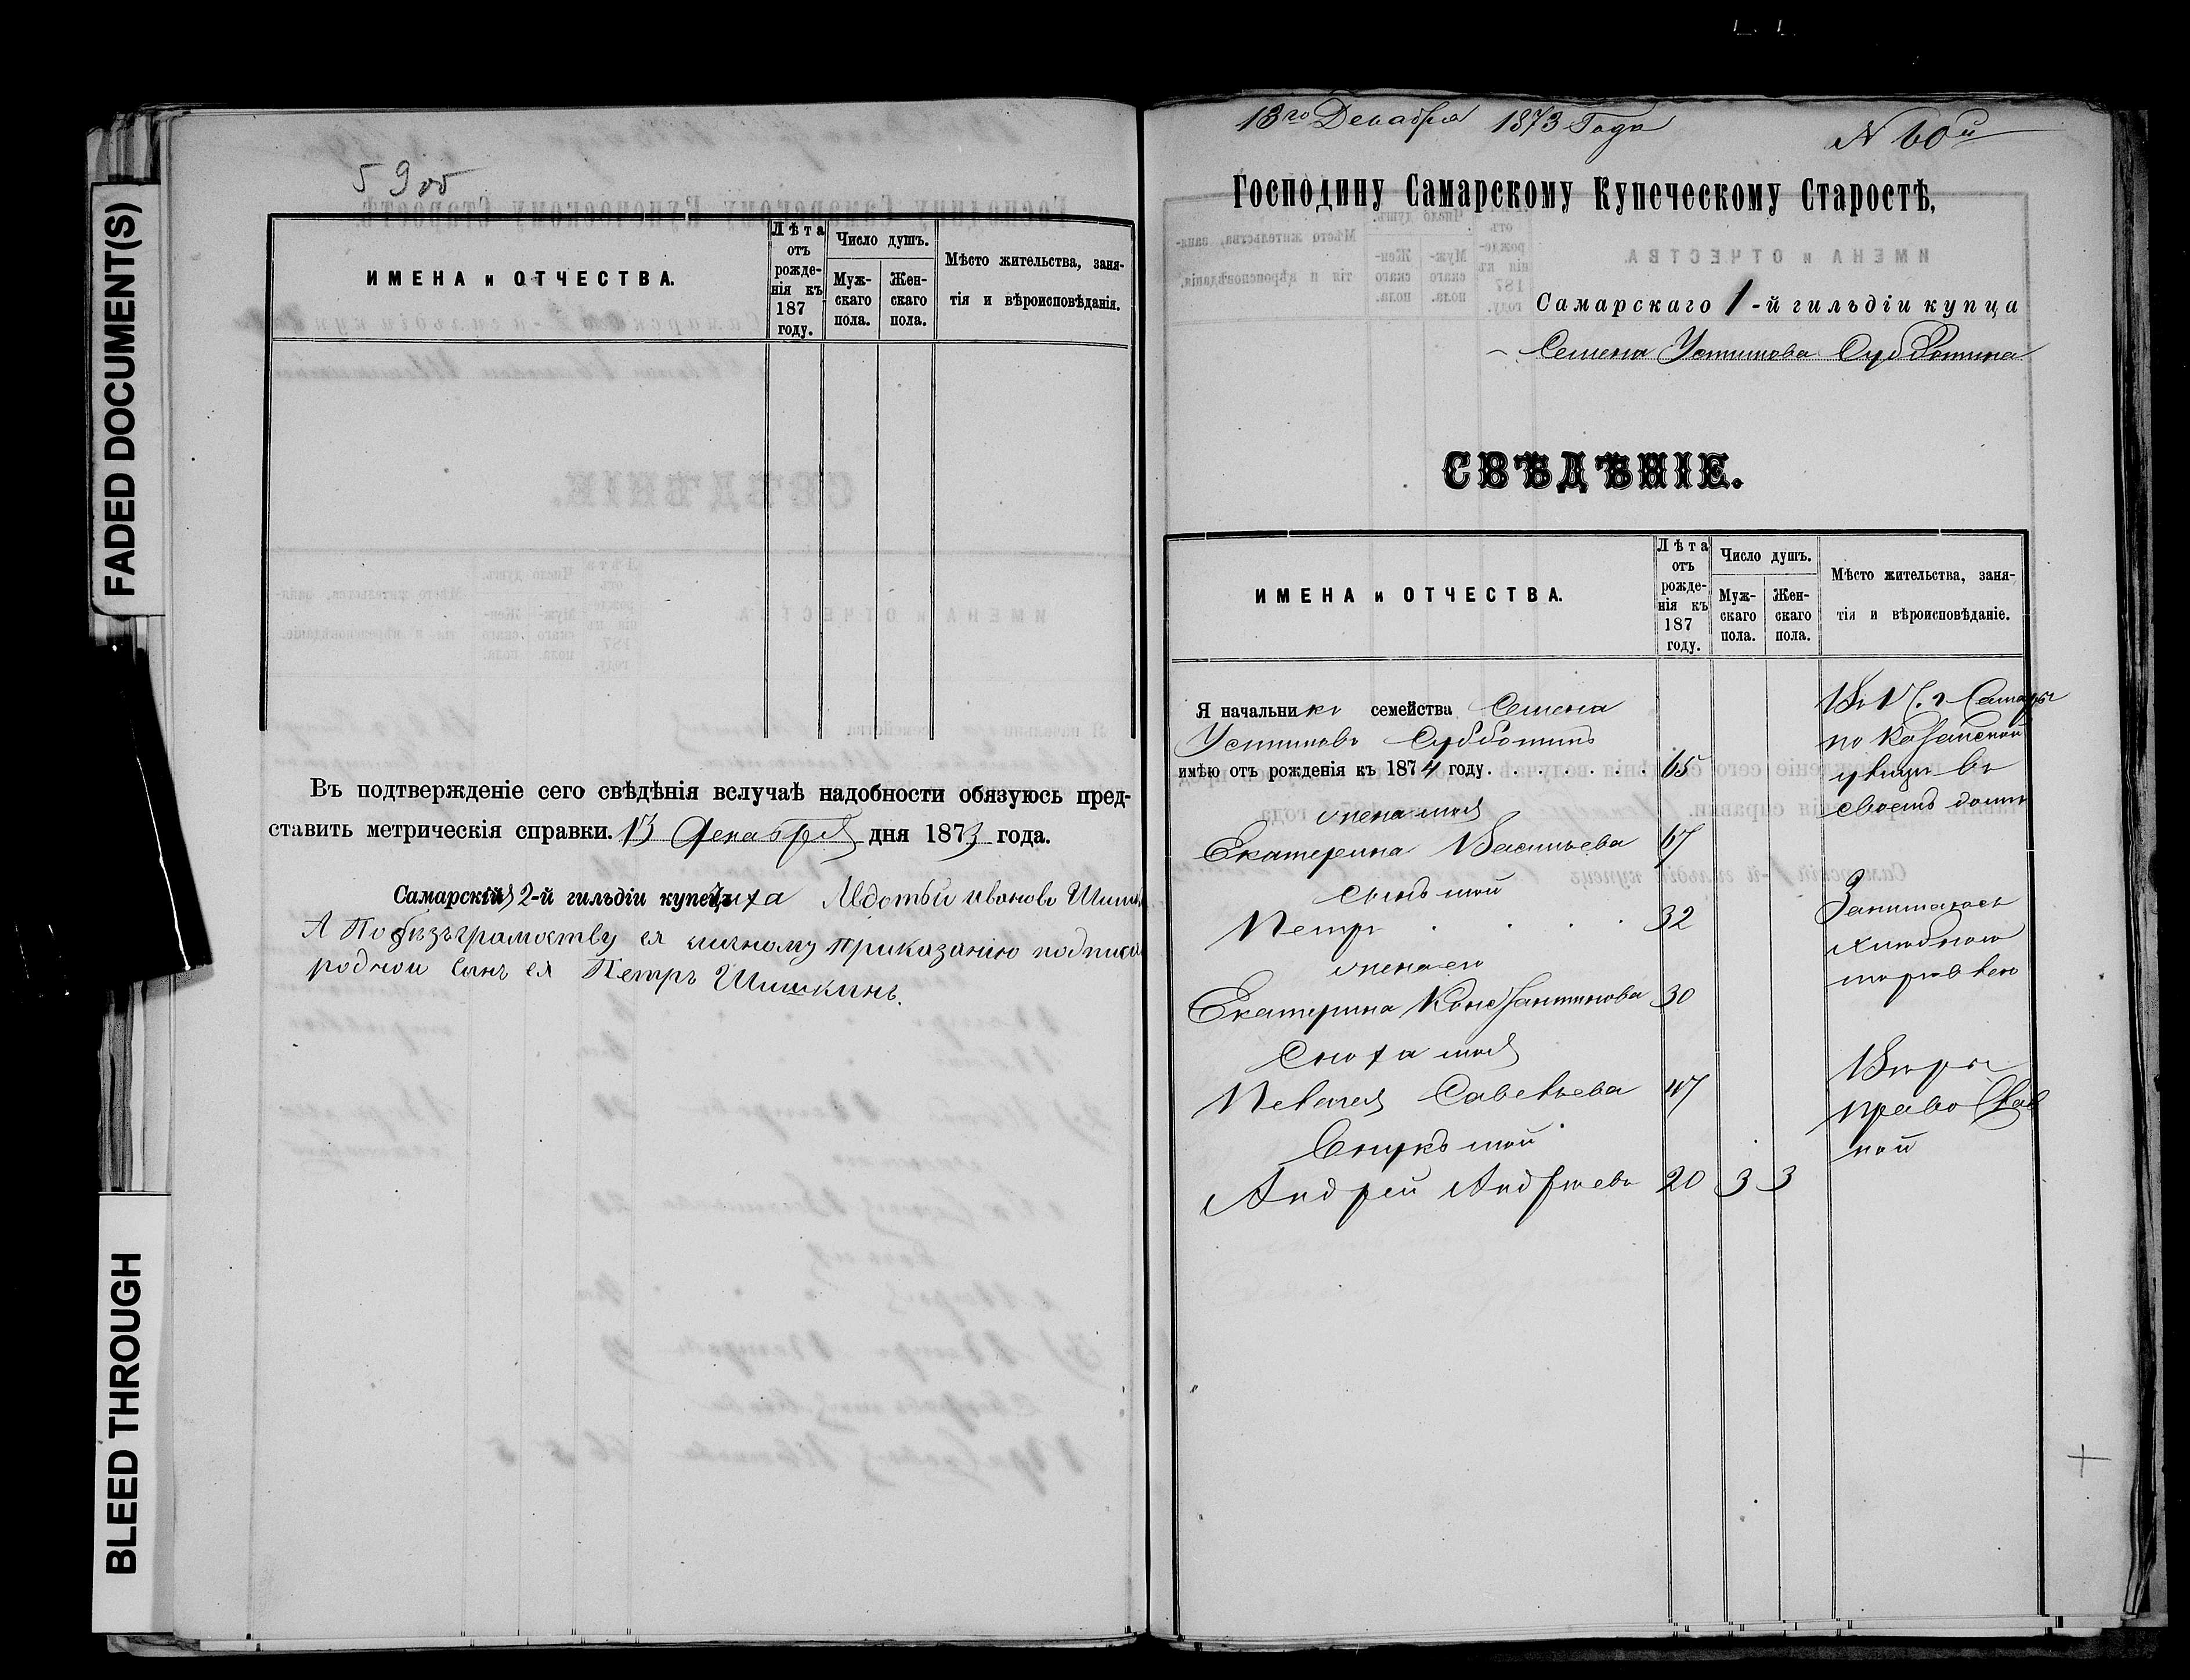 FADED DOCUMENT(S)
BLEED THROUGH
59об
ИМЕНА и ОТЧЕСТВА.
Лѣта отъ рожденія къ 187 году.
Число душъ.
Мужскаго пола.
Женскаго пола.
Мѣсто жительства, заня-
тія и вѣроисповѣданія.
Въ подтвержденіе сего свѣдѣнія вслучаѣ надобности обязуюсь пред-
ставить метрическія справки. 13 Декабря дня 1873 года.
Самарская 2-й гильдіи купчиха Авдотьи Иванова
А По безъграмоству ея личному приказанію
родной сынъ ея Петръ Шишкинъ.
13го Декабря 1873 Года
N 60й
Господину Самарскому Купеческому Старостѣ,
Самарскаго 1-й гильдіи купца
Семена Устинова Субботина
СВѢДѢНІЕ.
ИМЕНА и ОТЧЕСТВА.
Лѣта отъ рожденія къ 187 году.
Число душъ.
Мужскаго пола.
Женскаго пола.
Мѣсто жительства, заня-
тія и вѣроисповѣданіе.
Я начальникъ семейства Семенъ
Устиновъ Субботинъ
имѣю отъ рожденія къ 1874 году. 65
жена моя
Екатерина Васильева 67
сынъ мой
Петръ 32
жена его
Екатерина Константинова 30
Сноха моя
Пелагея Савельева 47
Внукъ мой
Андрей Андреевъ 20 3 3
Самары
по Казанской
улицѣ въ
своемъ домѣ
Занимаюсь
хлѣбною
торговлею
Вѣры
православ
ной